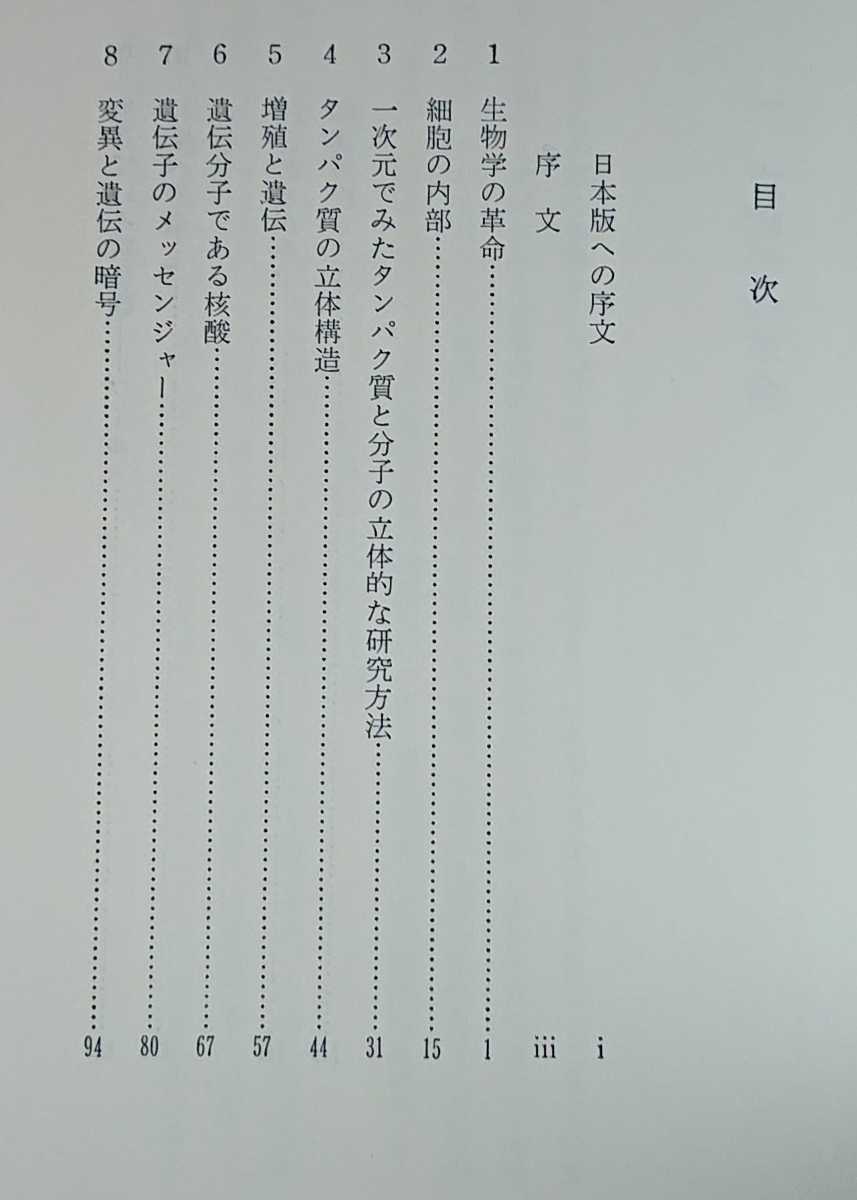 目次
日本版への序文 i
序文 iii
1 生物学の革命……………………………………1
2 細胞の内部……………………………………15
3 一次元でみたタンパク質と分子の立体的な研究方法……………………31
4 タンパク質の立体構造……………………………………44
5 増殖と遺伝……………………………………57
6 遺伝分子である核酸……………………………………67
7 遺伝子のメッセンジャー……………………………………80
8 変異と遺伝の暗号……………………………………94